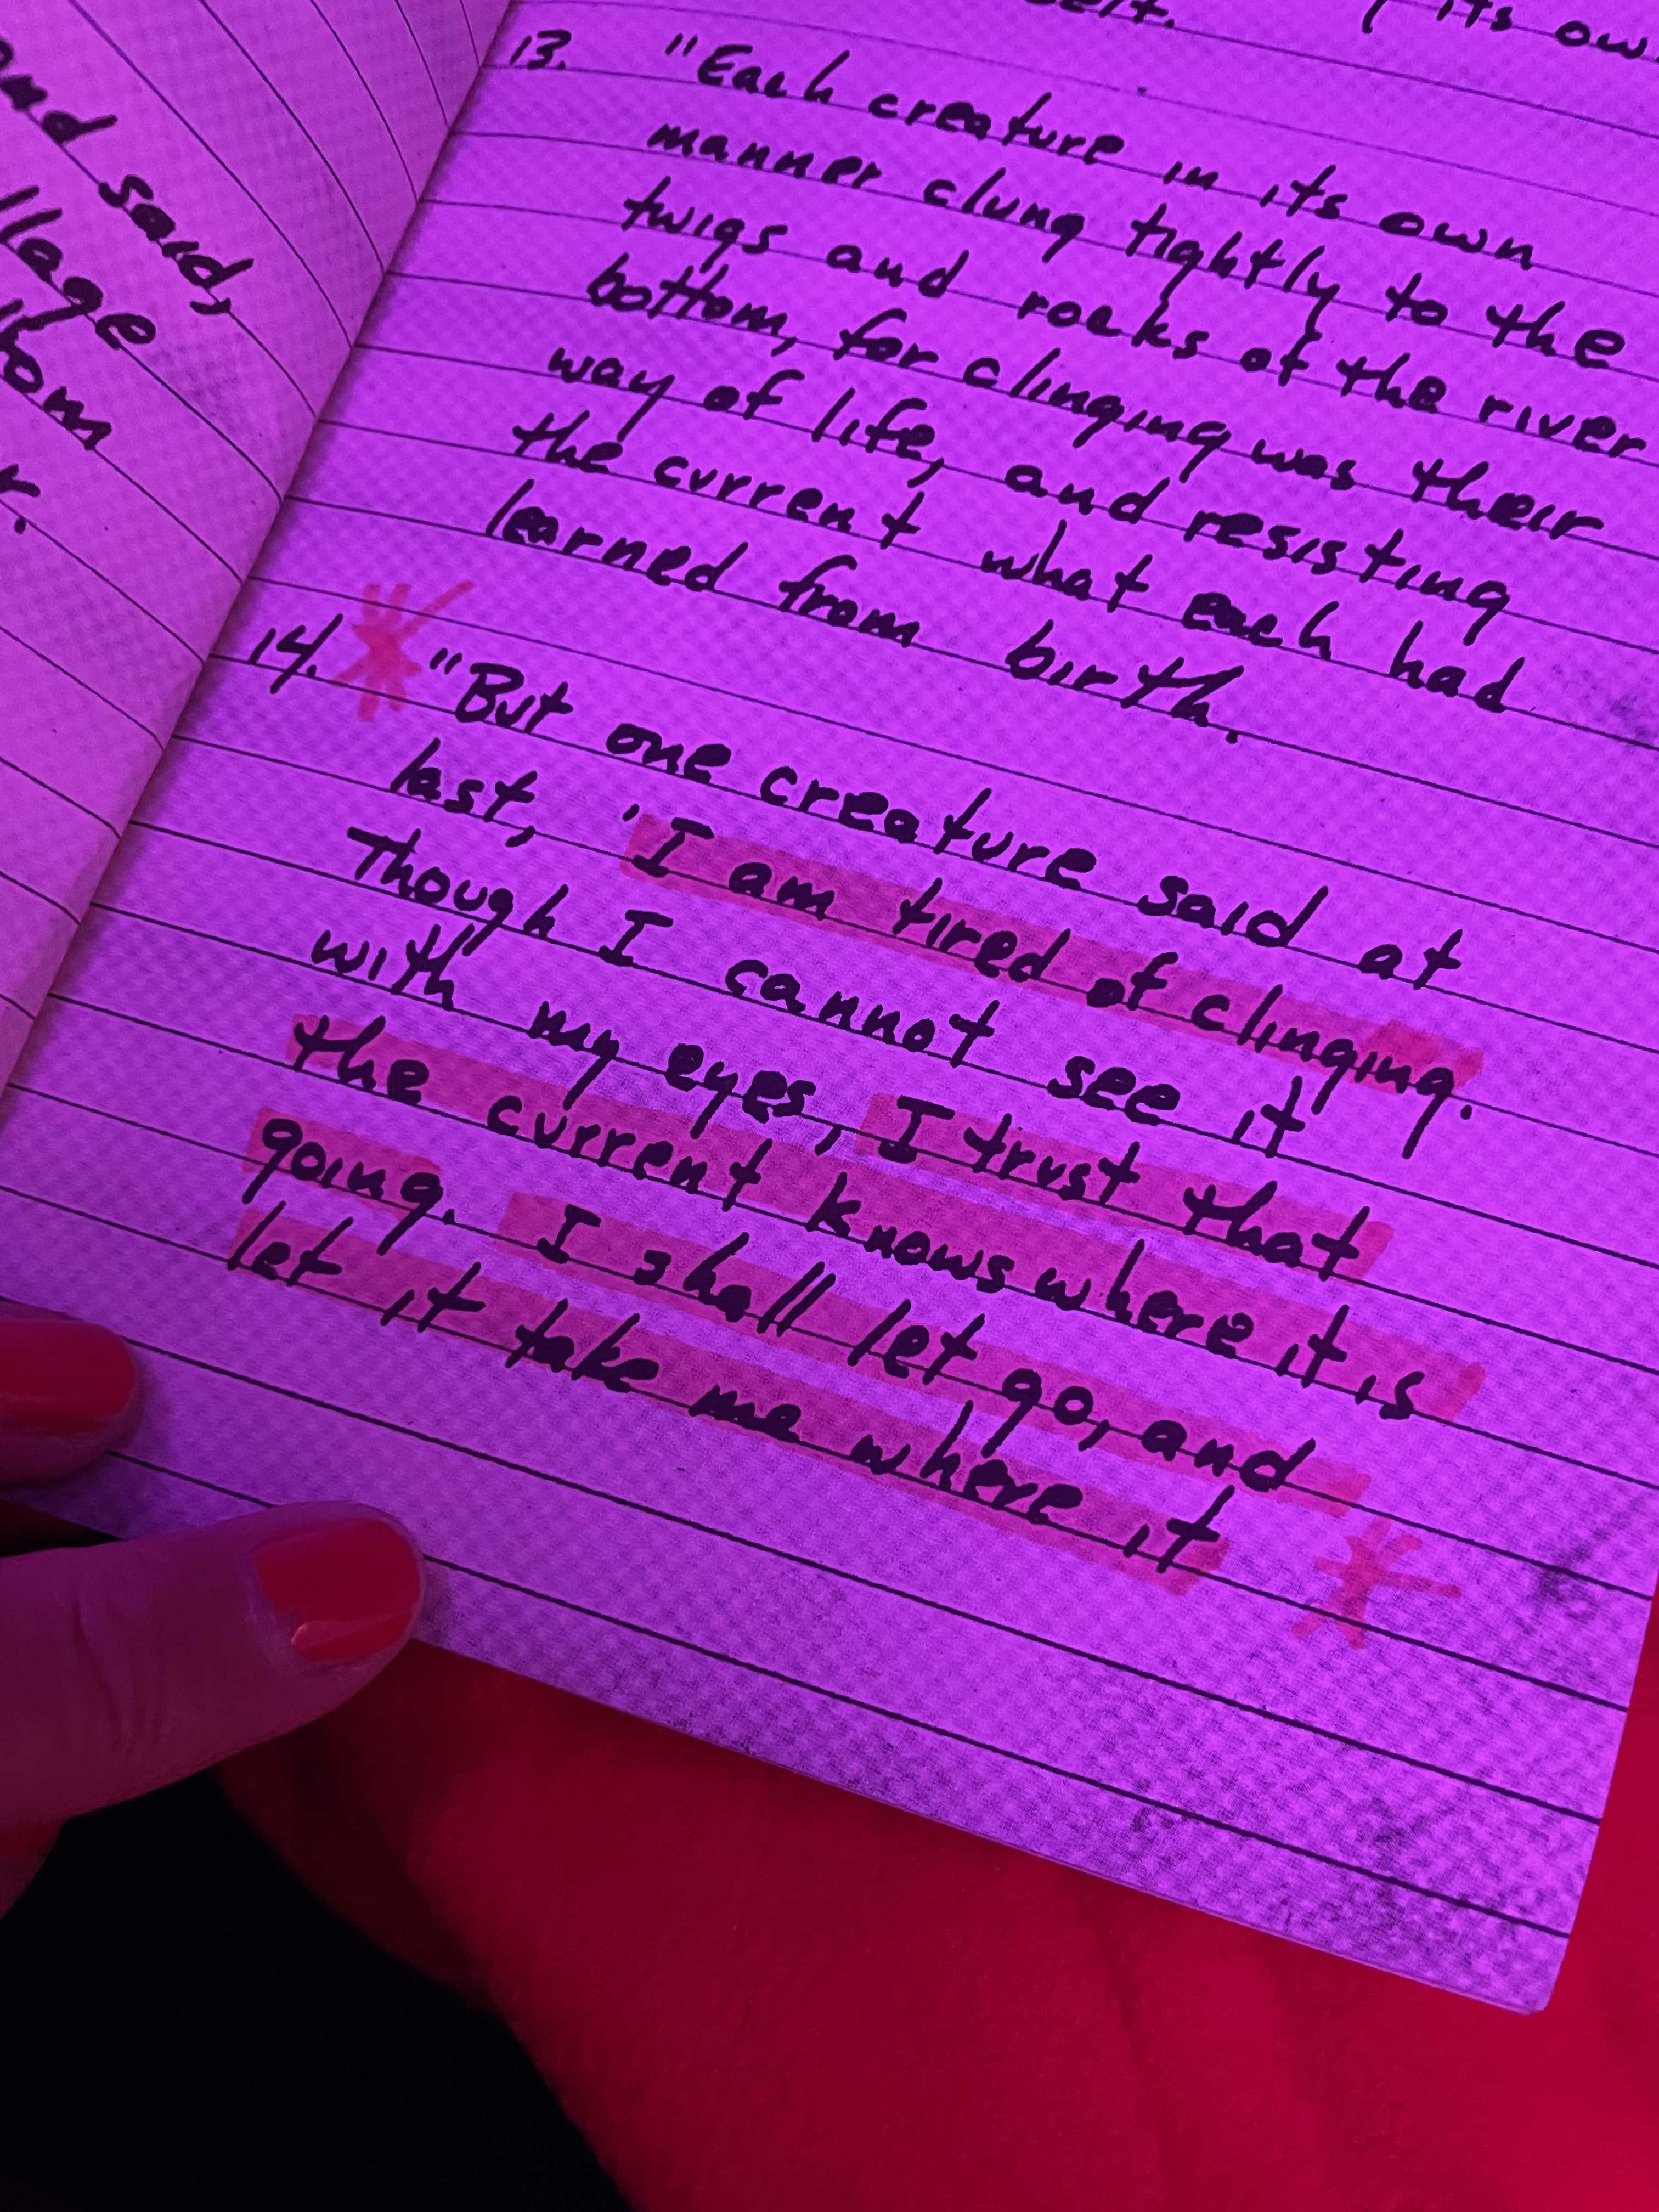 and said,
its own
13. "Each creature in its own
manner clung tightly to the
twigs and rocks of the river
bottom, for clinging was their
way of life, and resisting
the current what each had
learned from birth.
14. "But one creature said at
last, 'I am tired of clinging.
Though I cannot see it
with my eyes, I trust that
the current knows where it is
going. I shall let go, and
let it take me where it